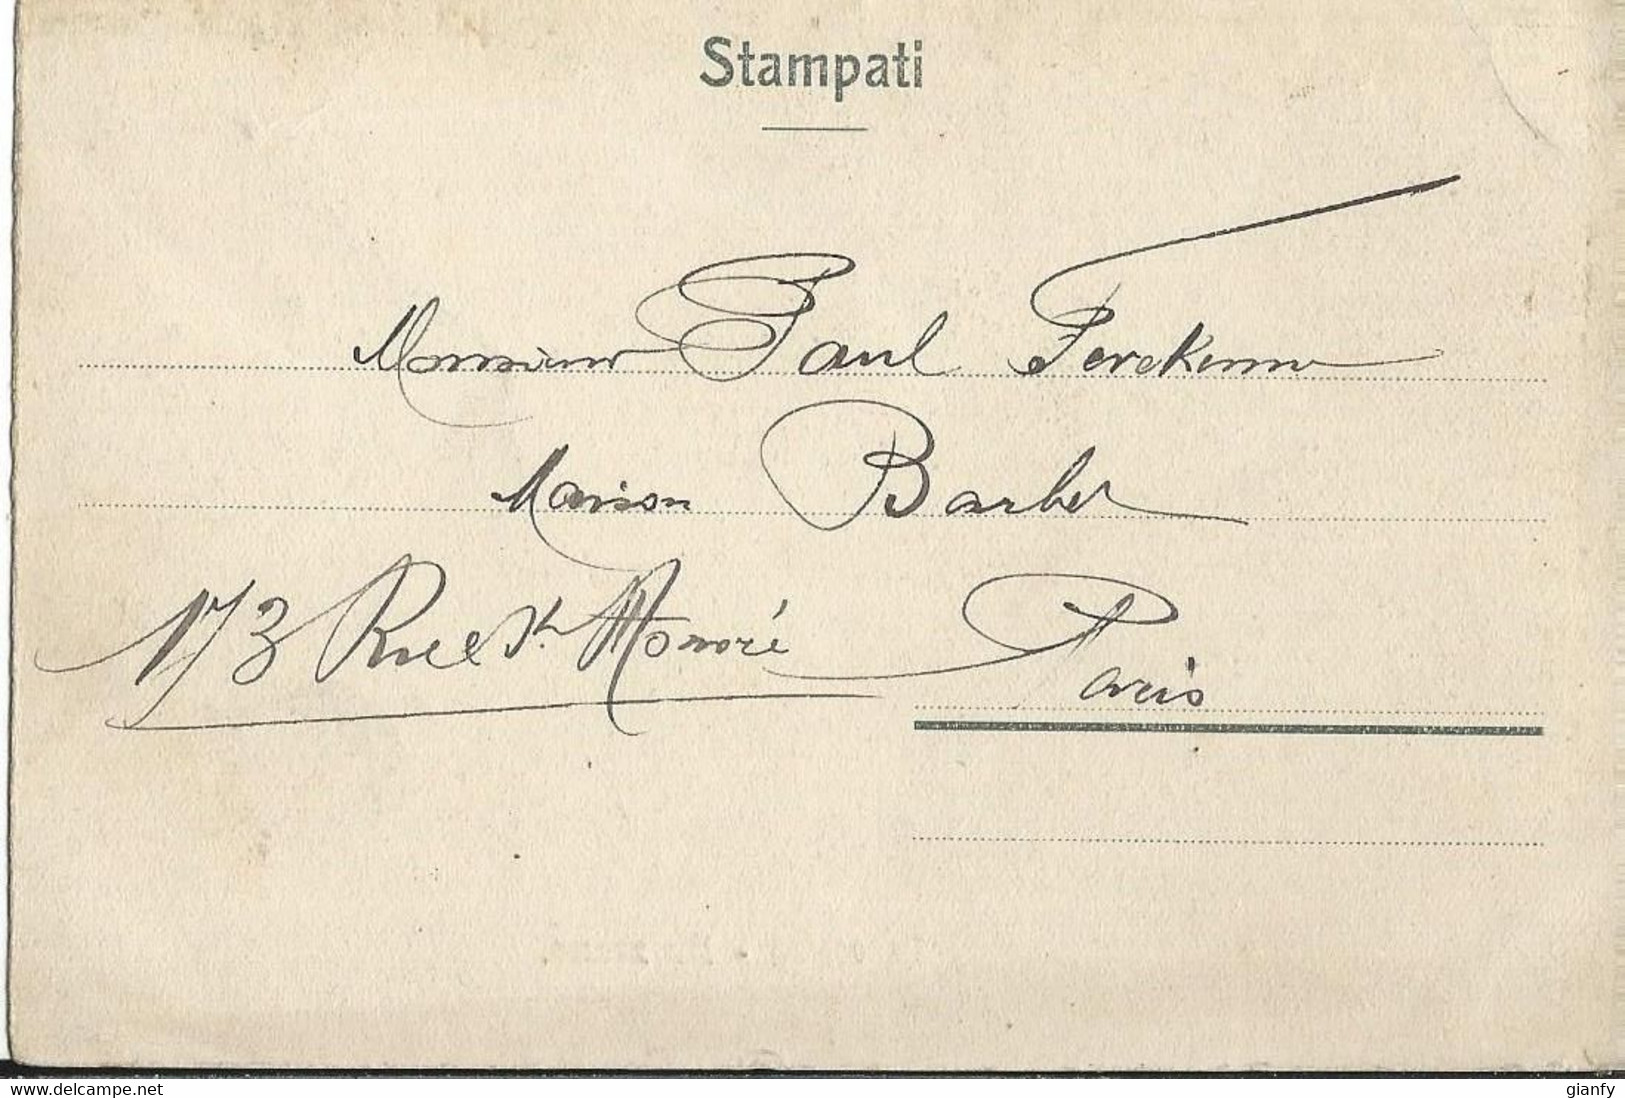 Stampati
Monsieur Paul Ferekenne
Maison Barbet
173 Rue St. Honoré Paris
www.delcampe.net
gianfy